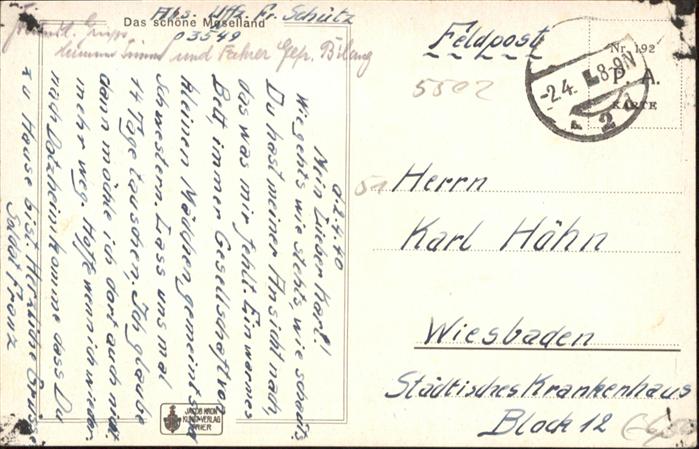 Abs. Uffz. Fr. Schütz
P 3549
Das schöne Moselland
und Fahrer Gefr.
d. 2.4.40
Mein lieber Karl!
Wie gehts wie stehts, wie schauts
Du hast meiner Ansicht nach,
das was mir fehlt. Ein warmes
Bett, immer Gesellschaft von
kleinen Mädchen gemeint sind
Schwestern. Lass uns mal
14 Tage tauschen. Ich glaube
dann möchte ich dort auch nicht
mehr weg. Hoffe wenn ich wieder
nach Dotzheim komme dass Du
zu Hause bist. Herzliche Grüsse
Soldat Franz
JACOB KRON
KUNST-VERLAG
TRIER
Feldpost
Nr. 192
P. A.
KARTE
-2.4. 8-9N
2
5502
51
Herrn
Karl Höhn
Wiesbaden
Städtisches Krankenhaus
Block 12